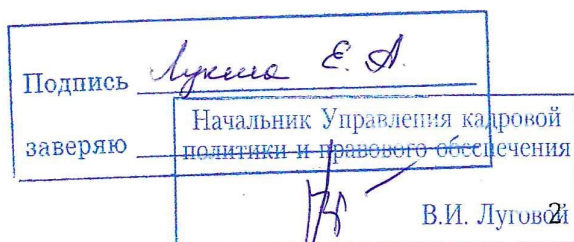 Подпись Лукша Е.А.
заверяю
Начальник Управления кадровой
политики и правового обеспечения
В.И. Луговой
2